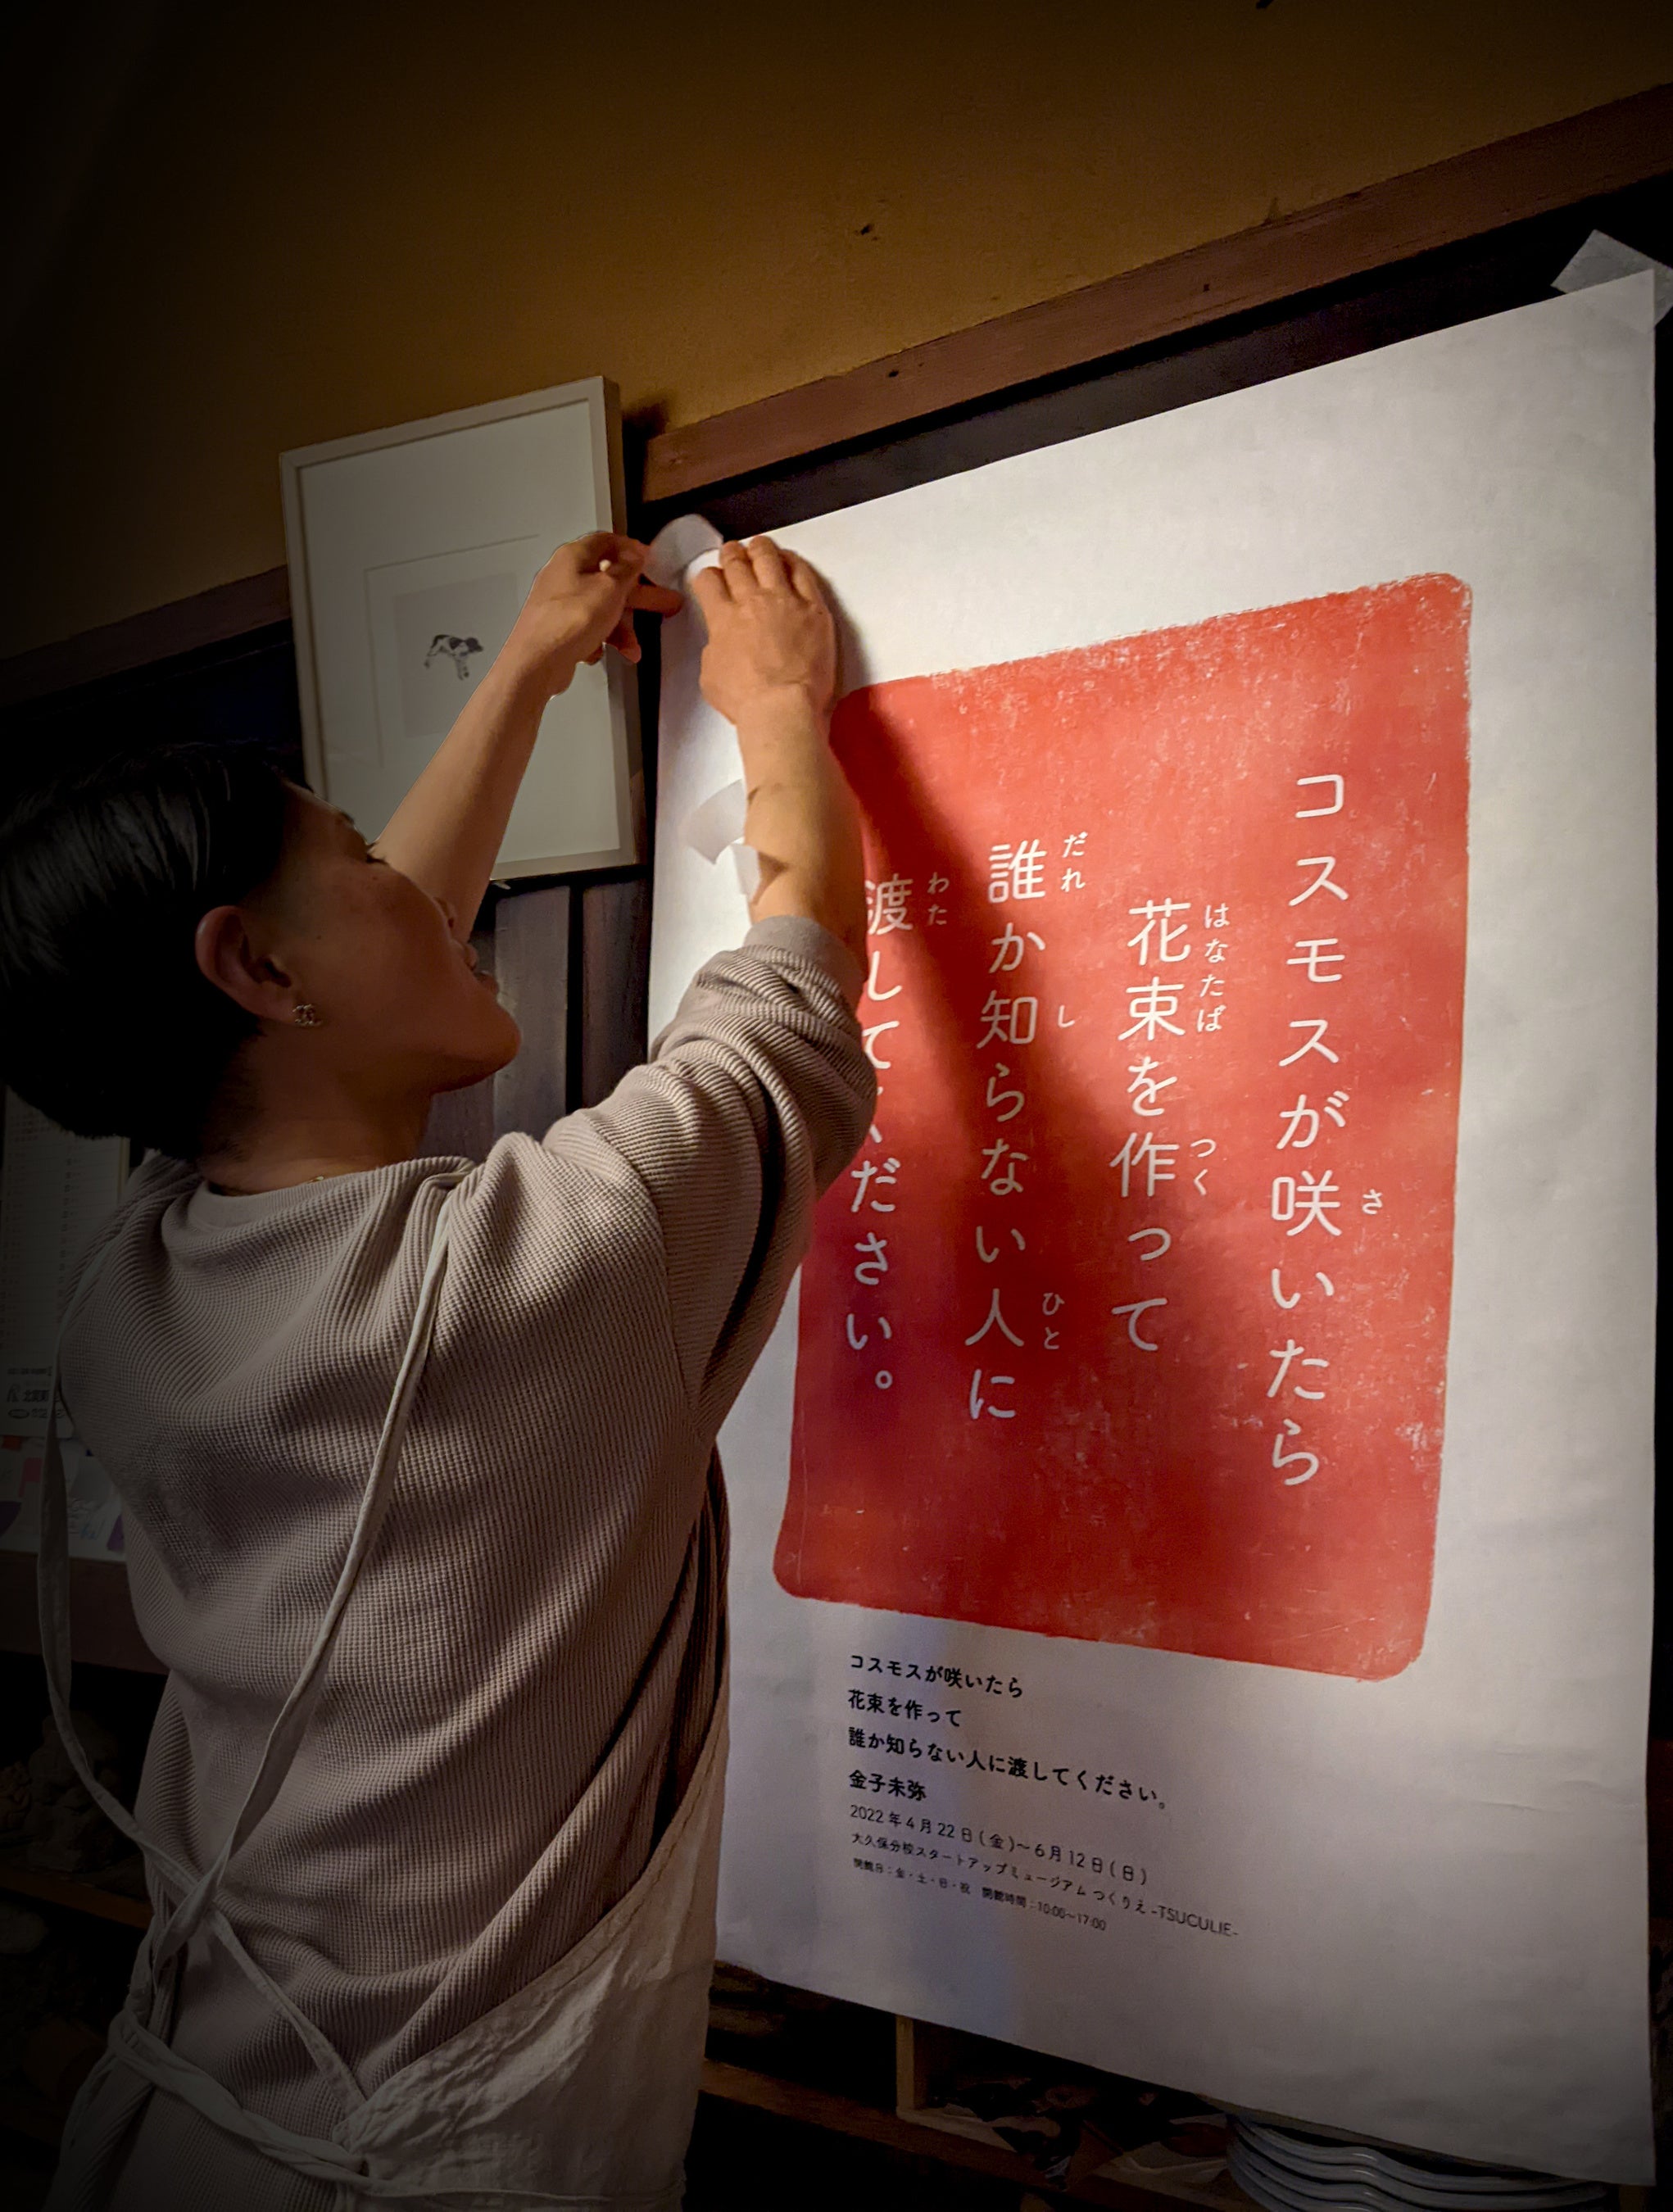 コスモスが咲いたら
花束を作って
誰か知らない人に
渡してください。
さ
はなたば
つく
だれ
し
ひと
わた
コスモスが咲いたら
花束を作って
誰か知らない人に渡してください。
金子未弥
2022年4月22日(金)〜6月12日(日)
大久保分校スタートアップミュージアム つくりえ -TSUCULIE-
開館日：金・土・日・祝　開館時間：10:00〜17:00